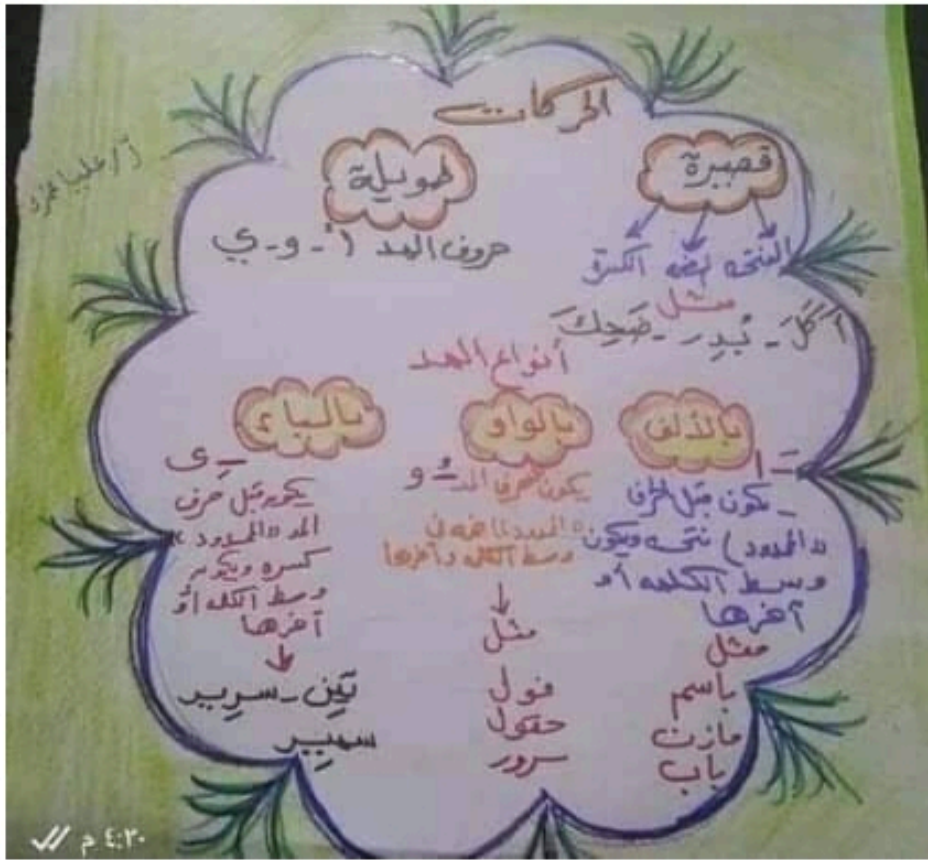 الحركات
قصيرة
الفتحه الضمه الكسرة
مثل
أَكَلَ - بُدِر - ضَحِكَ
طويلة
حروف المد (أ - و - ي
أنواع المد
بالألف
ـَ ا
ـ يكون قبل الحرف
«الممدود» فتحه ويكون
وسط الكلمه أو
آخرها
مثل
باسم
مازن
باب
بالواو
يكون حرف المد ـُ و
"الممدود" ضمه في
وسط الكلمه وآخرها
مثل
فول
حقول
سرور
بالياء
ـِ ى
يكون قبل حرف
المد «الممدود»
كسره ويكون
وسط الكلمه أو
آخرها
تِين - سرِير
سمِير
أ/علياء
٤:٢٠ م